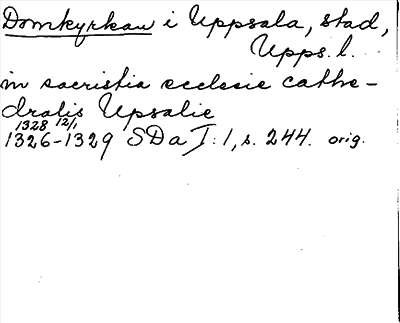 Domkyrkan i Uppsala, stad,
Upps. l.
in sacristia ecclesie cathe-
dralis Upsalie
1328 12/1
1326-1329 SDa I:1, s. 244. orig.